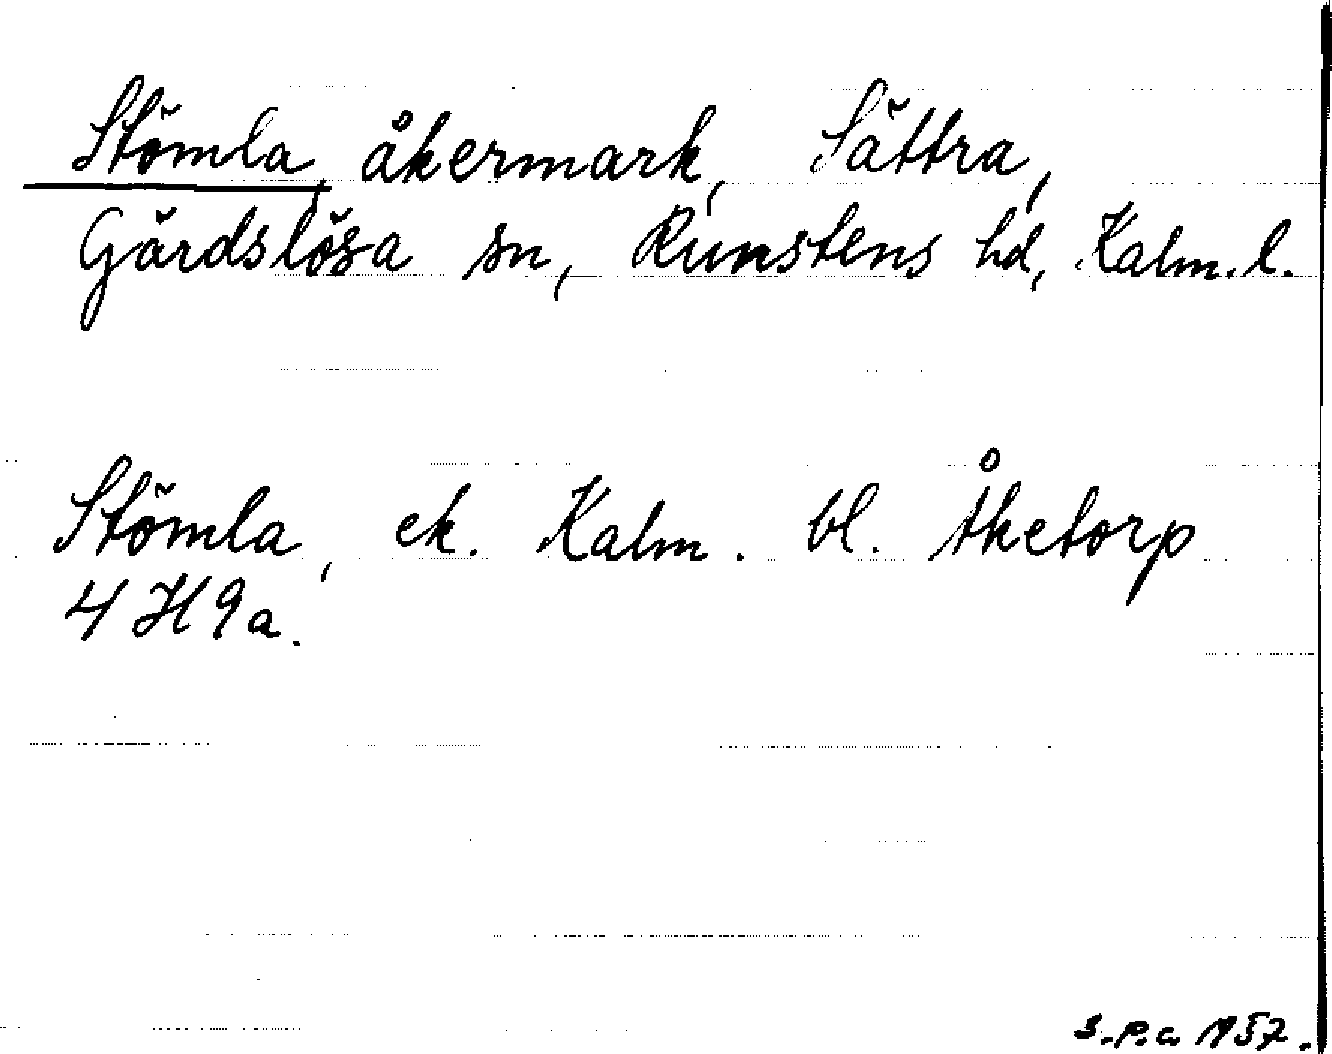 Stömla, åkermark, Sättra,
Gärdslösa sn, Runstens hd, Kalm. l.
Stömla, ek. Kalm. bl. Åketorp
4 H 9a.
S.P.A. 1957.